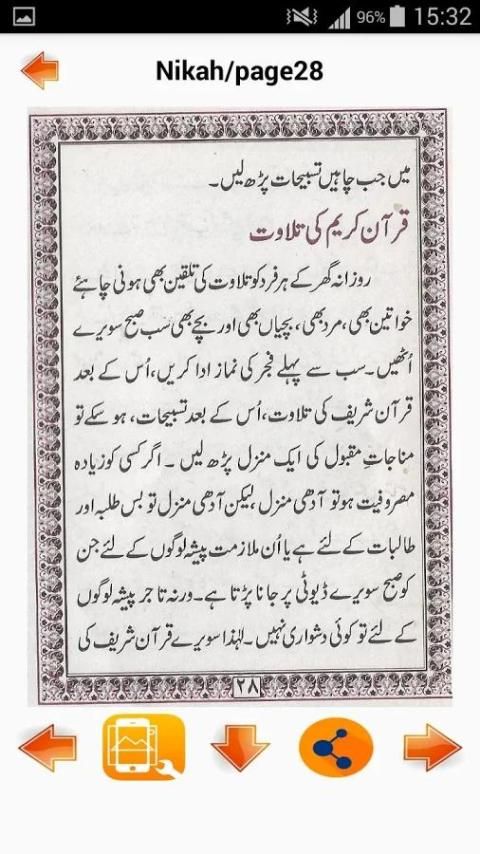 96% 15:32
Nikah/page28
میں جب چاہیں تسبیحات پڑھ لیں۔
قرآن کریم کی تلاوت
روزانہ گھر کے ہر فرد کو تلاوت کی تلقین بھی ہونی چاہئے
خواتین بھی، مرد بھی، بچیاں بھی اور بچے بھی سب صبح سویرے
اُٹھیں۔ سب سے پہلے فجر کی نماز ادا کریں، اُس کے بعد
قرآن شریف کی تلاوت، اُس کے بعد تسبیحات، ہو سکے تو
مناجاتِ مقبول کی ایک منزل پڑھ لیں ۔ اگر کسی کو زیادہ
مصروفیت ہو تو آدھی منزل، لیکن آدھی منزل تو بس طلبہ اور
طالبات کے لئے ہے یا اُن ملازمت پیشہ لوگوں کے لئے جن
کو صبح سویرے ڈیوٹی پر جانا پڑتا ہے۔ ورنہ تاجر پیشہ لوگوں
کے لئے تو کوئی دشواری نہیں ۔ لہٰذا سویرے قرآن شریف کی
۲۸